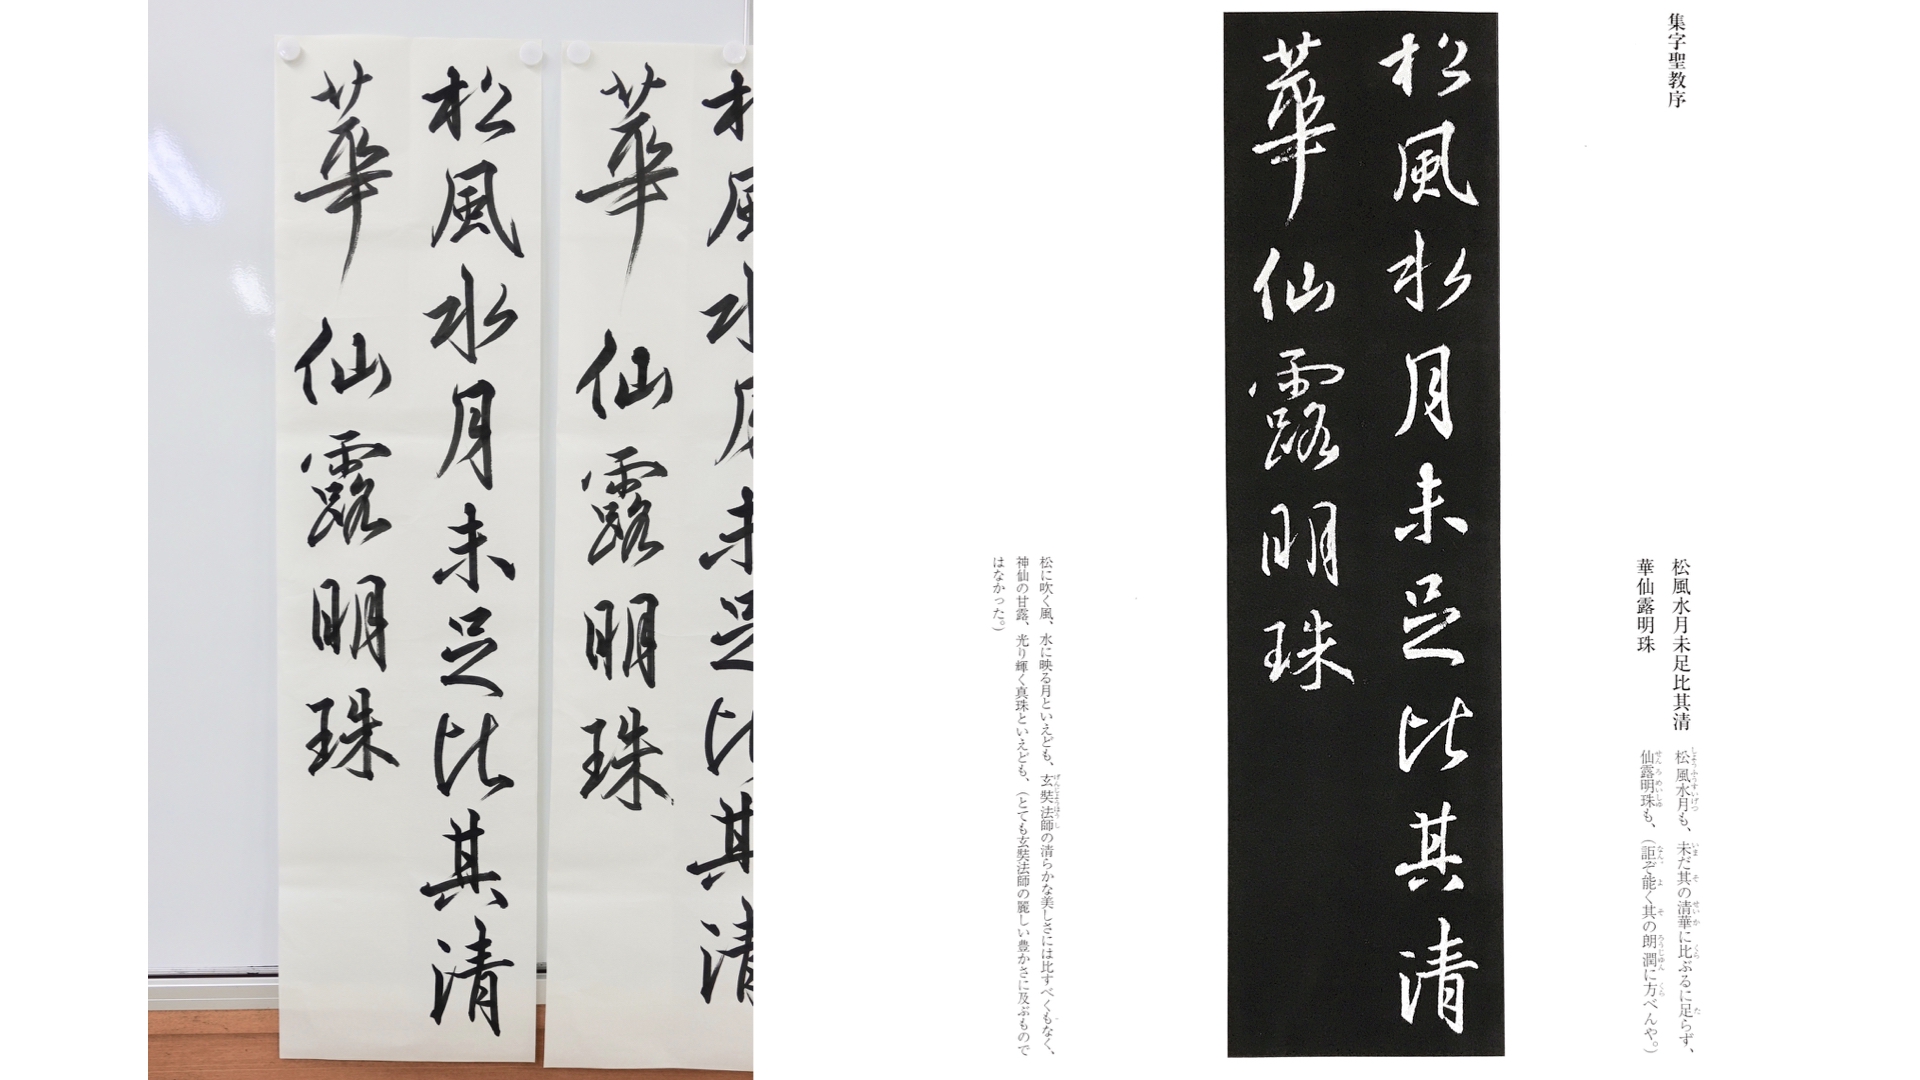 松風水月未足比其清
華仙露明珠
松風水月未足比其清
華仙露明珠
集字聖教序
松風水月未足比其清
華仙露明珠
松風水月も、未だ其の清華に比ぶるに足らず、
仙露明珠も、（詎ぞ能く其の朗潤に方べんや。）
松風水月未足比其清
華仙露明珠
松に吹く風、水に映る月といえども、玄奘法師の清らかな美しさには比すべくもなく、
神仙の甘露、光り輝く真珠といえども、（とても玄奘法師の麗しい豊かさに及ぶもので
はなかった。）